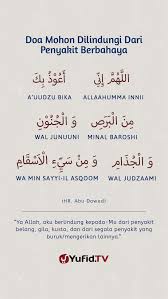 Doa Mohon Dilindungi Dari
Penyakit Berbahaya
اللَّهُمَّ إِنِّي أَعُوْذُ بِكَ
A'UUDZU BIKA ALLAAHUMMA INNII
مِنَ الْبَرَصِ وَ الْجُنُوْنِ
WAL JUNUUNI MINAL BAROSHI
وَ الْجُذَامِ وَ مِنْ سَيِّءِ الْأَسْقَامِ
WA MIN SAYYI-IL ASQOOM WAL JUDZAAMI
(HR. Abu Dawud)
"Ya Allah, aku berlindung kepada-Mu dari penyakit
belang, gila, kusta, dan dari segala penyakit yang
buruk/mengerikan lainnya."
YUFID.TV